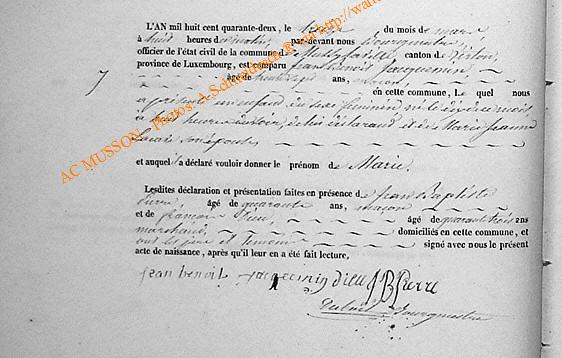 L'AN mil huit cent quarante-deux, le treize du mois de mars
à huit heures du matin, par-devant nous Bourgmestre,
officier de l'état civil de la commune de canton de Virton,
province de Luxembourg, est comparu Jacquemin
âgé de ans, maçon
en cette commune, le quel nous
a présenté un enfant du sexe féminin, né le
à heures du soir, de lui déclarant et de Marie Jeanne
son épouse,
et auquel a déclaré vouloir donner le prénom de Marie.
Lesdites déclaration et présentation faites en présence de Jean Baptiste
Pierre, âgé de quarante ans, maçon
et de françois Dieu, âgé de quarante trois ans
marchand, domiciliés en cette commune, et
ont les père et témoins signé avec nous le présent
acte de naissance, après qu'il leur en a été fait lecture,
jean benoit jacquemin dieu JBPierre
Bourgmestre
7
AC MUSSON Photos: A Schmitz http://www